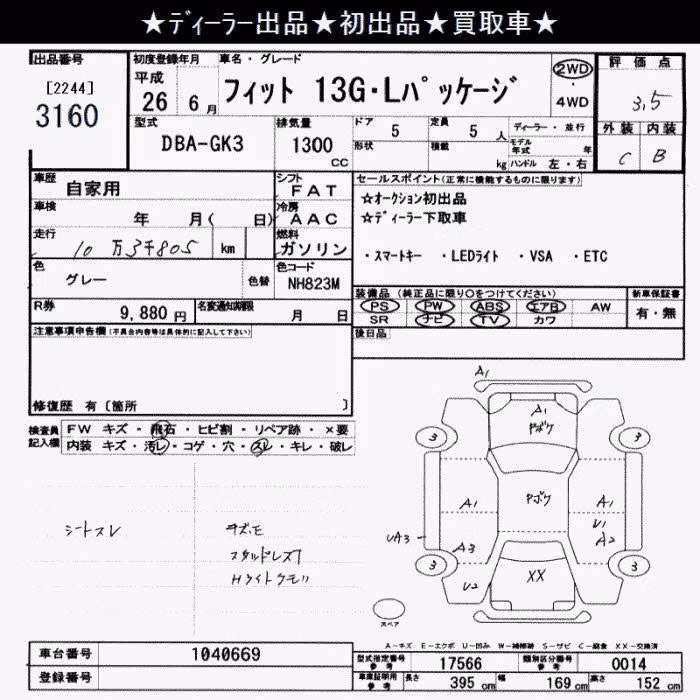 ★ディーラー出品★初出品★買取車★
出品番号
[2244]
3160
初度登録年月 車名・グレード
平成 26 6月
フィット 13G・Lパッケージ
2WD
・
4WD
評価点
3.5
外装 内装
C B
型式
DBA-GK3
排気量
1300 cc
ドア 5
定員 5 人
ディーラー・並行
形状
積載 kg
モデル年式 年
ハンドル 左・右
車歴
自家用
車検
年 月( 日)
走行
10万3千805 km
色
グレー
色替
シフト
FAT
冷房
AAC
燃料
ガソリン
色コード
NH823M
R券
9,880 円
名変通知期限
月 日
セールスポイント(正常に機能するものに限ります)
☆オークション初出品
☆ディーラー下取車
・スマートキー ・LEDライト ・VSA ・ETC
装備品(純正品に限り〇をつけてください)
PS PW ABS エアB AW
SR ナビ TV カワ
新車保証書
有・無
後日品
注意事項申告欄(不具合内容等は具体的に記入して下さい)
修復歴 有〔箇所 〕
検査員記入欄
FW キズ・飛石・ヒビ割・リペア跡・×要
内装 キズ・汚レ・コゲ・穴・スレ・キレ・破レ
シートスレ
キズ、モ
スタッドレス
Hライトクモリ
A1
A1
Pボケ
3
3
Pボケ
A1
A1
U1
A2
UA3
A3
3
3
U2
XX
スペア
A-キズ E-エクボ U-凹み W-補修跡 S-サビ C-腐食 XX-交換済
車台番号
1040669
登録番号
型式指定番号 参考
17566
類別区分番号 参考
0014
車庫証明用 参考
長さ 395 cm 幅 169 cm 高さ 152 cm